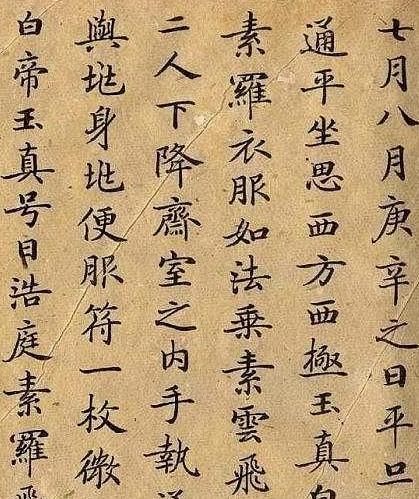 七月八月庚辛之日平旦
通平坐思西方西極玉真白
素羅衣服如法乗素雲飛
二人下降齋室之内手執
與地身地便服符一枚微
白帝玉真号曰浩庭素羅飛